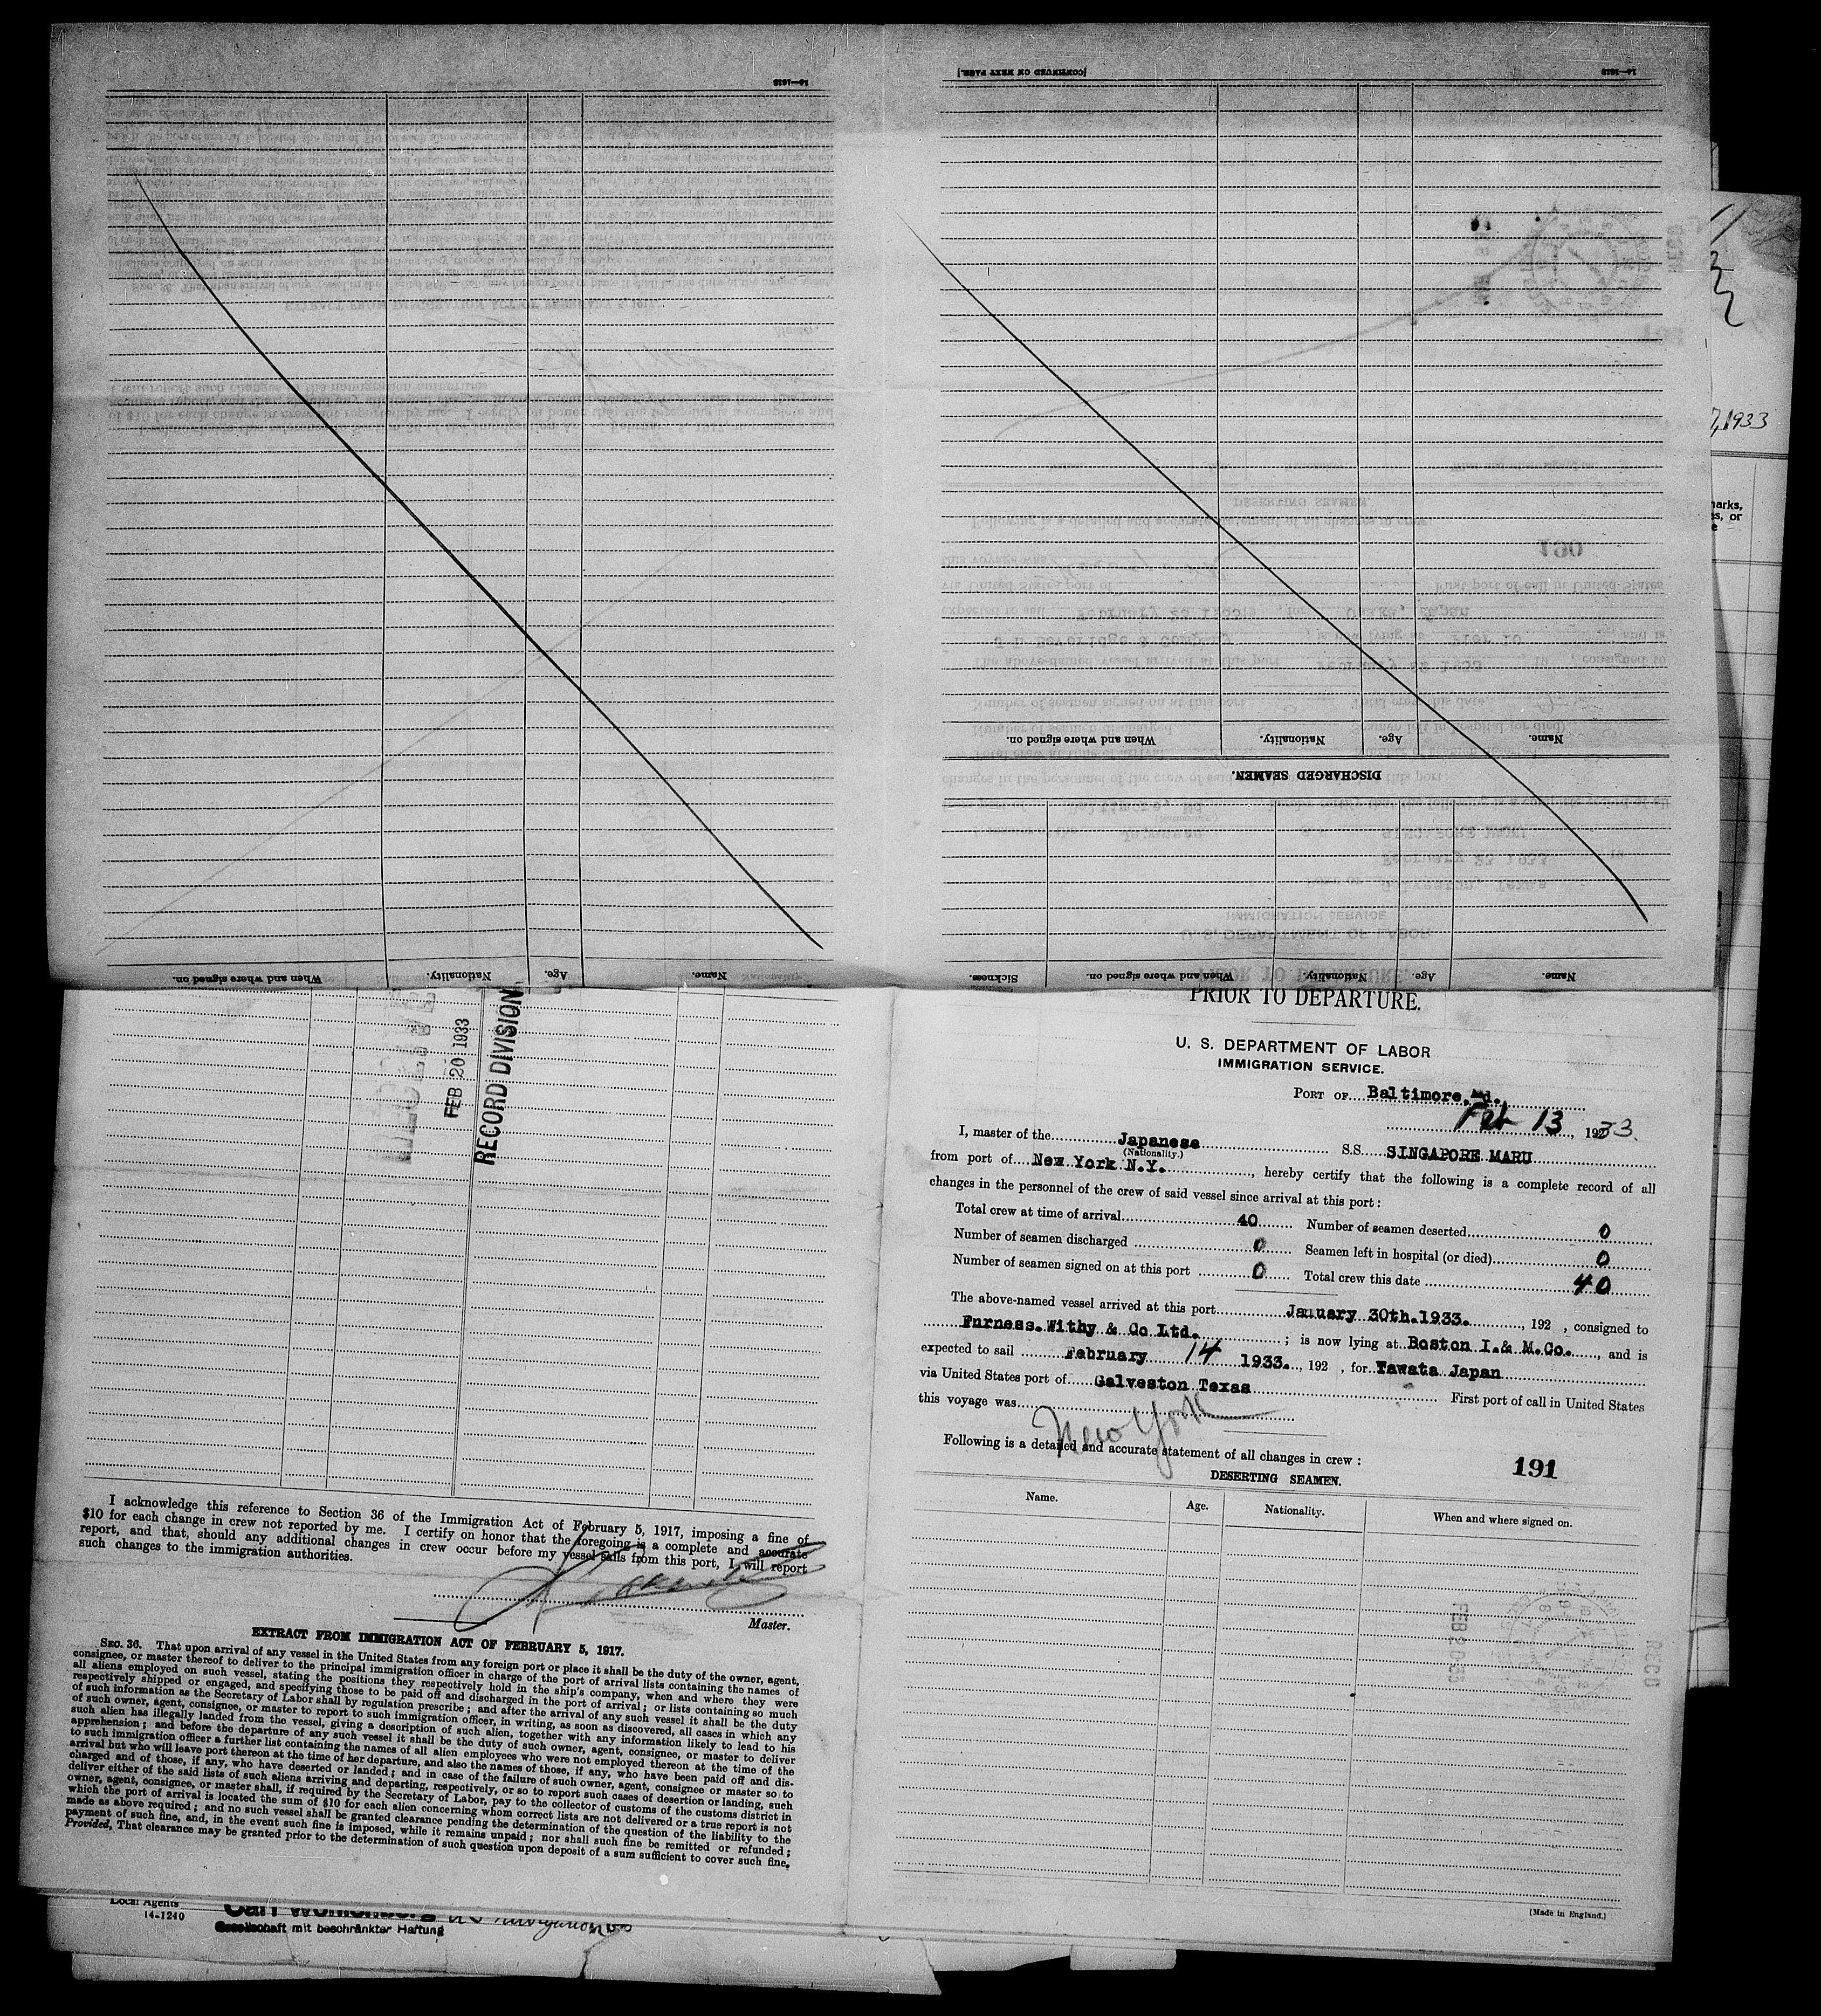 [CONTINUED ON NEXT PAGE.]
14—1240
Name.
Age.
Nationality.
When and where signed on.
DISCHARGED SEAMEN.
Name.
Age.
Nationality.
When and where signed on.
Sickness.
Name.
Age.
Nationality.
When and where signed on.
7, 1933
FEB 20 1933
RECORD DIVISION
PRIOR TO DEPARTURE.
U. S. DEPARTMENT OF LABOR
IMMIGRATION SERVICE.
PORT OF Baltimore, Md.
Feb 13, 1933.
I, master of the Japanese S.S. SINGAPORE MARU
(Nationality.)
from port of New York N.Y. , hereby certify that the following is a complete record of all
changes in the personnel of the crew of said vessel since arrival at this port :
Total crew at time of arrival 40 Number of seamen deserted 0
Number of seamen discharged 0 Seamen left in hospital (or died) 0
Number of seamen signed on at this port 0 Total crew this date 40
The above-named vessel arrived at this port January 30th.1933. , 192 , consigned to
Furness.Withy & Co Ltd. ; is now lying at Boston I.& M.Co. , and is
expected to sail February 14 1933. , 192 , for Yawata Japan
via United States port of Galveston Texas First port of call in United States
this voyage was New York
Following is a detailed and accurate statement of all changes in crew :
191
DESERTING SEAMEN.
Name. Age. Nationality. When and where signed on.
FEB 20 33
RECD
(Made in England.)
I acknowledge this reference to Section 36 of the Immigration Act of February 5, 1917, imposing a fine of
$10 for each change in crew not reported by me. I certify on honor that the foregoing is a complete and accurate
report, and that, should any additional changes in crew occur before my vessel sails from this port, I will report
such changes to the immigration authorities.
Master.
EXTRACT FROM IMMIGRATION ACT OF FEBRUARY 5, 1917.
SEC. 36. That upon arrival of any vessel in the United States from any foreign port or place it shall be the duty of the owner, agent,
consignee, or master thereof to deliver to the principal immigration officer in charge of the port of arrival lists containing the names of
all aliens employed on such vessel, stating the positions they respectively hold in the ship's company, when and where they were
respectively shipped or engaged, and specifying those to be paid off and discharged in the port of arrival ; or lists containing so much
of such information as the Secretary of Labor shall by regulation prescribe ; and after the arrival of any such vessel it shall be the duty
of such owner, agent, consignee, or master to report to such immigration officer, in writing, as soon as discovered, all cases in which any
such alien has illegally landed from the vessel, giving a description of such alien, together with any information likely to lead to his
apprehension ; and before the departure of any such vessel it shall be the duty of such owner, agent, consignee, or master to deliver
to such immigration officer a further list containing the names of all alien employees who were not employed thereon at the time of the
arrival but who will leave port thereon at the time of her departure, and also the names of those, if any, who have been paid off and dis-
charged and of those, if any, who have deserted or landed ; and in case of the failure of such owner, agent, consignee or master so to
deliver either of the said lists of such aliens arriving and departing, respectively, or so to report such cases of desertion or landing, such
owner, agent, consignee, or master shall, if required by the Secretary of Labor, pay to the collector of customs of the customs district in
which the port of arrival is located the sum of $10 for each alien concerning whom correct lists are not delivered or a true report is not
made as above required ; and no such vessel shall be granted clearance pending the determination of the question of the liability to the
payment of such fine, and, in the event such fine is imposed, while it remains unpaid ; nor shall such fine be remitted or refunded ;
Provided, That clearance may be granted prior to the determination of such question upon deposit of a sum sufficient to cover such fine.
Local Agents
14-1240
Gesellschaft mit beschränkter Haftung